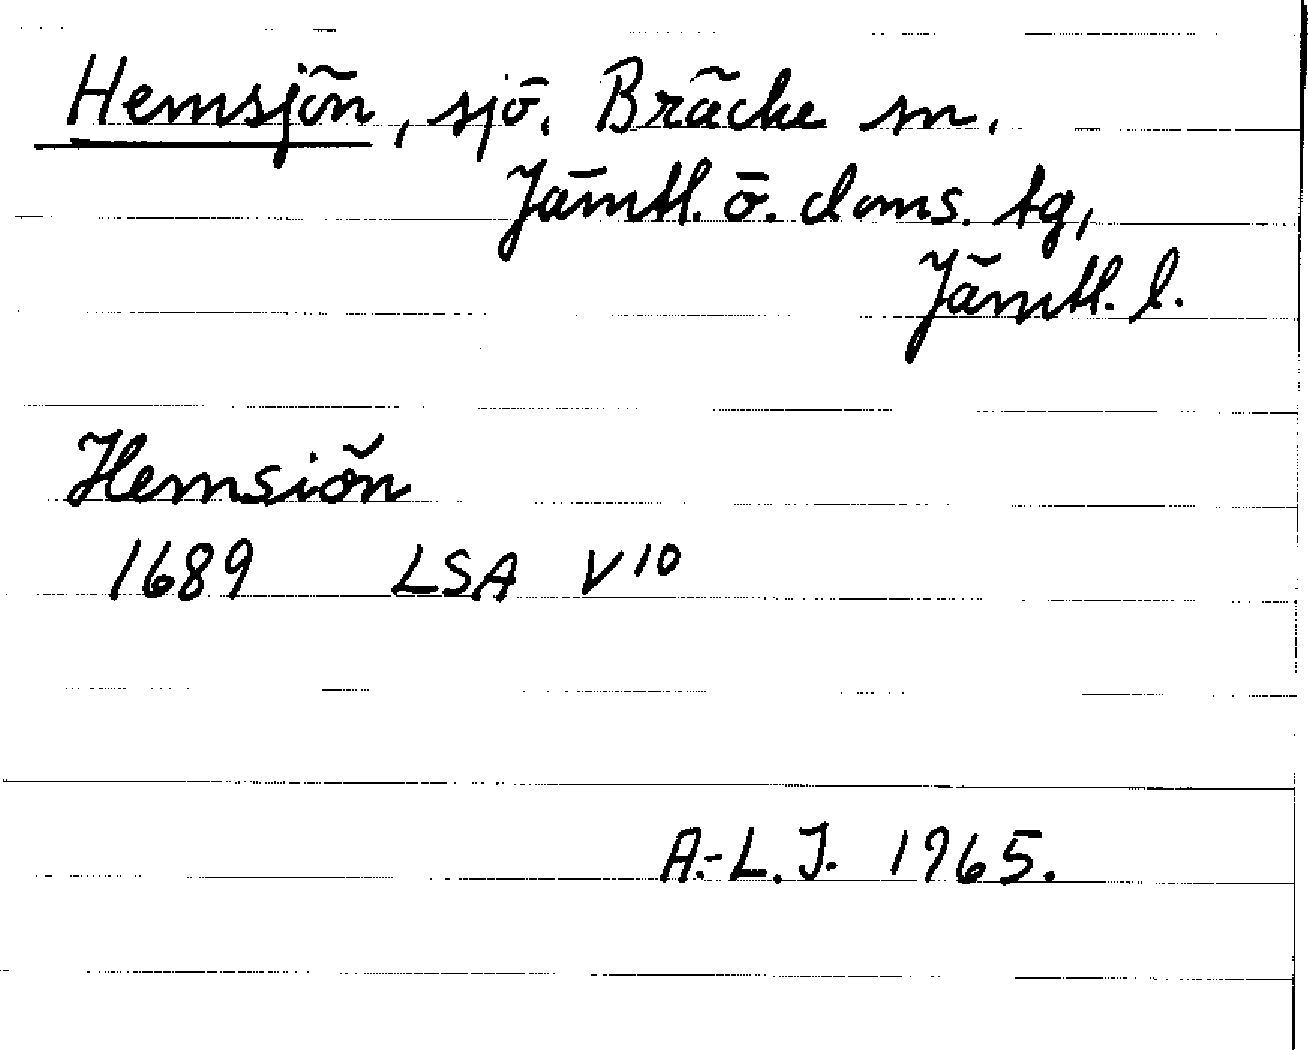 Hemsjön, sjö. Bräcke sn.
Jämtl. ö. doms. tg,
Jämtl. l.
Hemsiön
1689 LSA V10
A.-L. J. 1965.